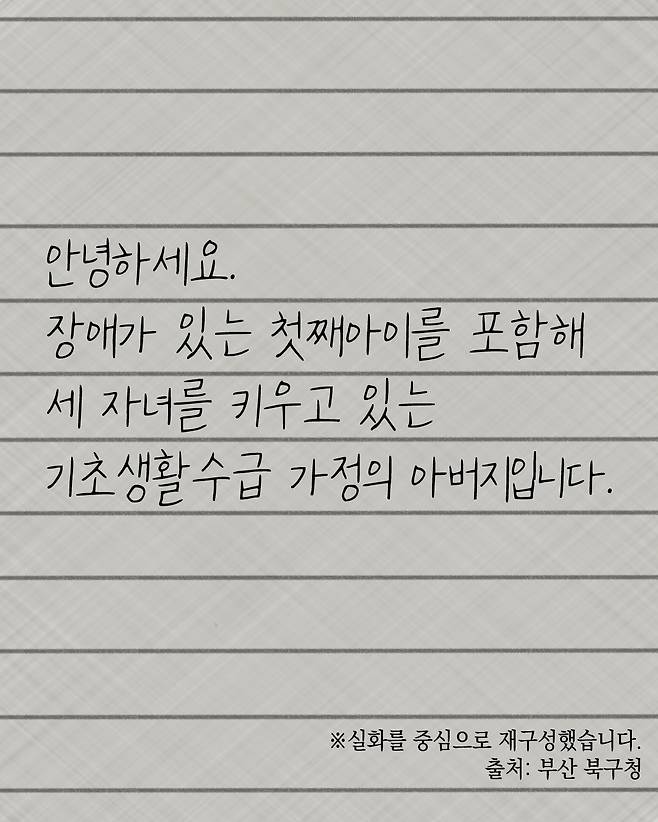 안녕하세요.
장애가 있는 첫째아이를 포함해
세 자녀를 키우고 있는
기초생활수급 가정의 아버지입니다.
※실화를 중심으로 재구성했습니다.
출처: 부산 북구청